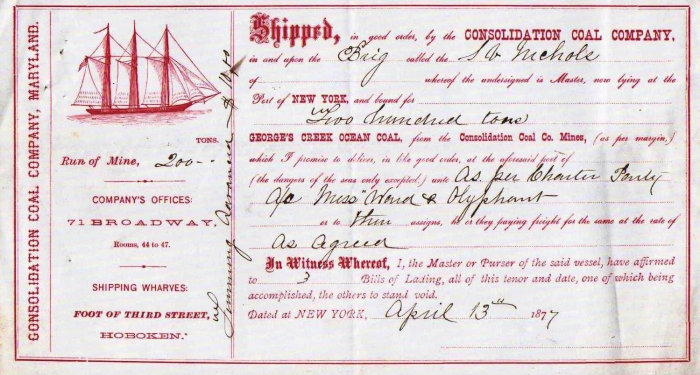 CONSOLIDATION COAL COMPANY, MARYLAND.
TONS.
Run of Mine, 200--
COMPANY'S OFFICES:
71 BROADWAY,
Rooms, 44 to 47.
SHIPPING WHARVES:
FOOT OF THIRD STREET,
HOBOKEN.
Trimming Advanced $
Shipped, in good order, by the CONSOLIDATION COAL COMPANY,
in and upon the Brig called the Nichols
of whereof the undersigned is Master, now lying at the
Port of NEW YORK, and bound for
Two hundred tons
GEORGE'S CREEK OCEAN COAL, from the Consolidation Coal Co. Mines, (as per margin,)
which I promise to deliver, in like good order, at the aforesaid port of
(the dangers of the seas only excepted,) unto As per Charter Party
a/c Miss Ward & Olyphant
or to their assigns, he or they paying freight for the same at the rate of
As agreed
In Witness Whereof, I, the Master or Purser of the said vessel, have affirmed
to 3 Bills of Lading, all of this tenor and date, one of which being
accomplished, the others to stand void.
Dated at NEW YORK, April 13th 1877